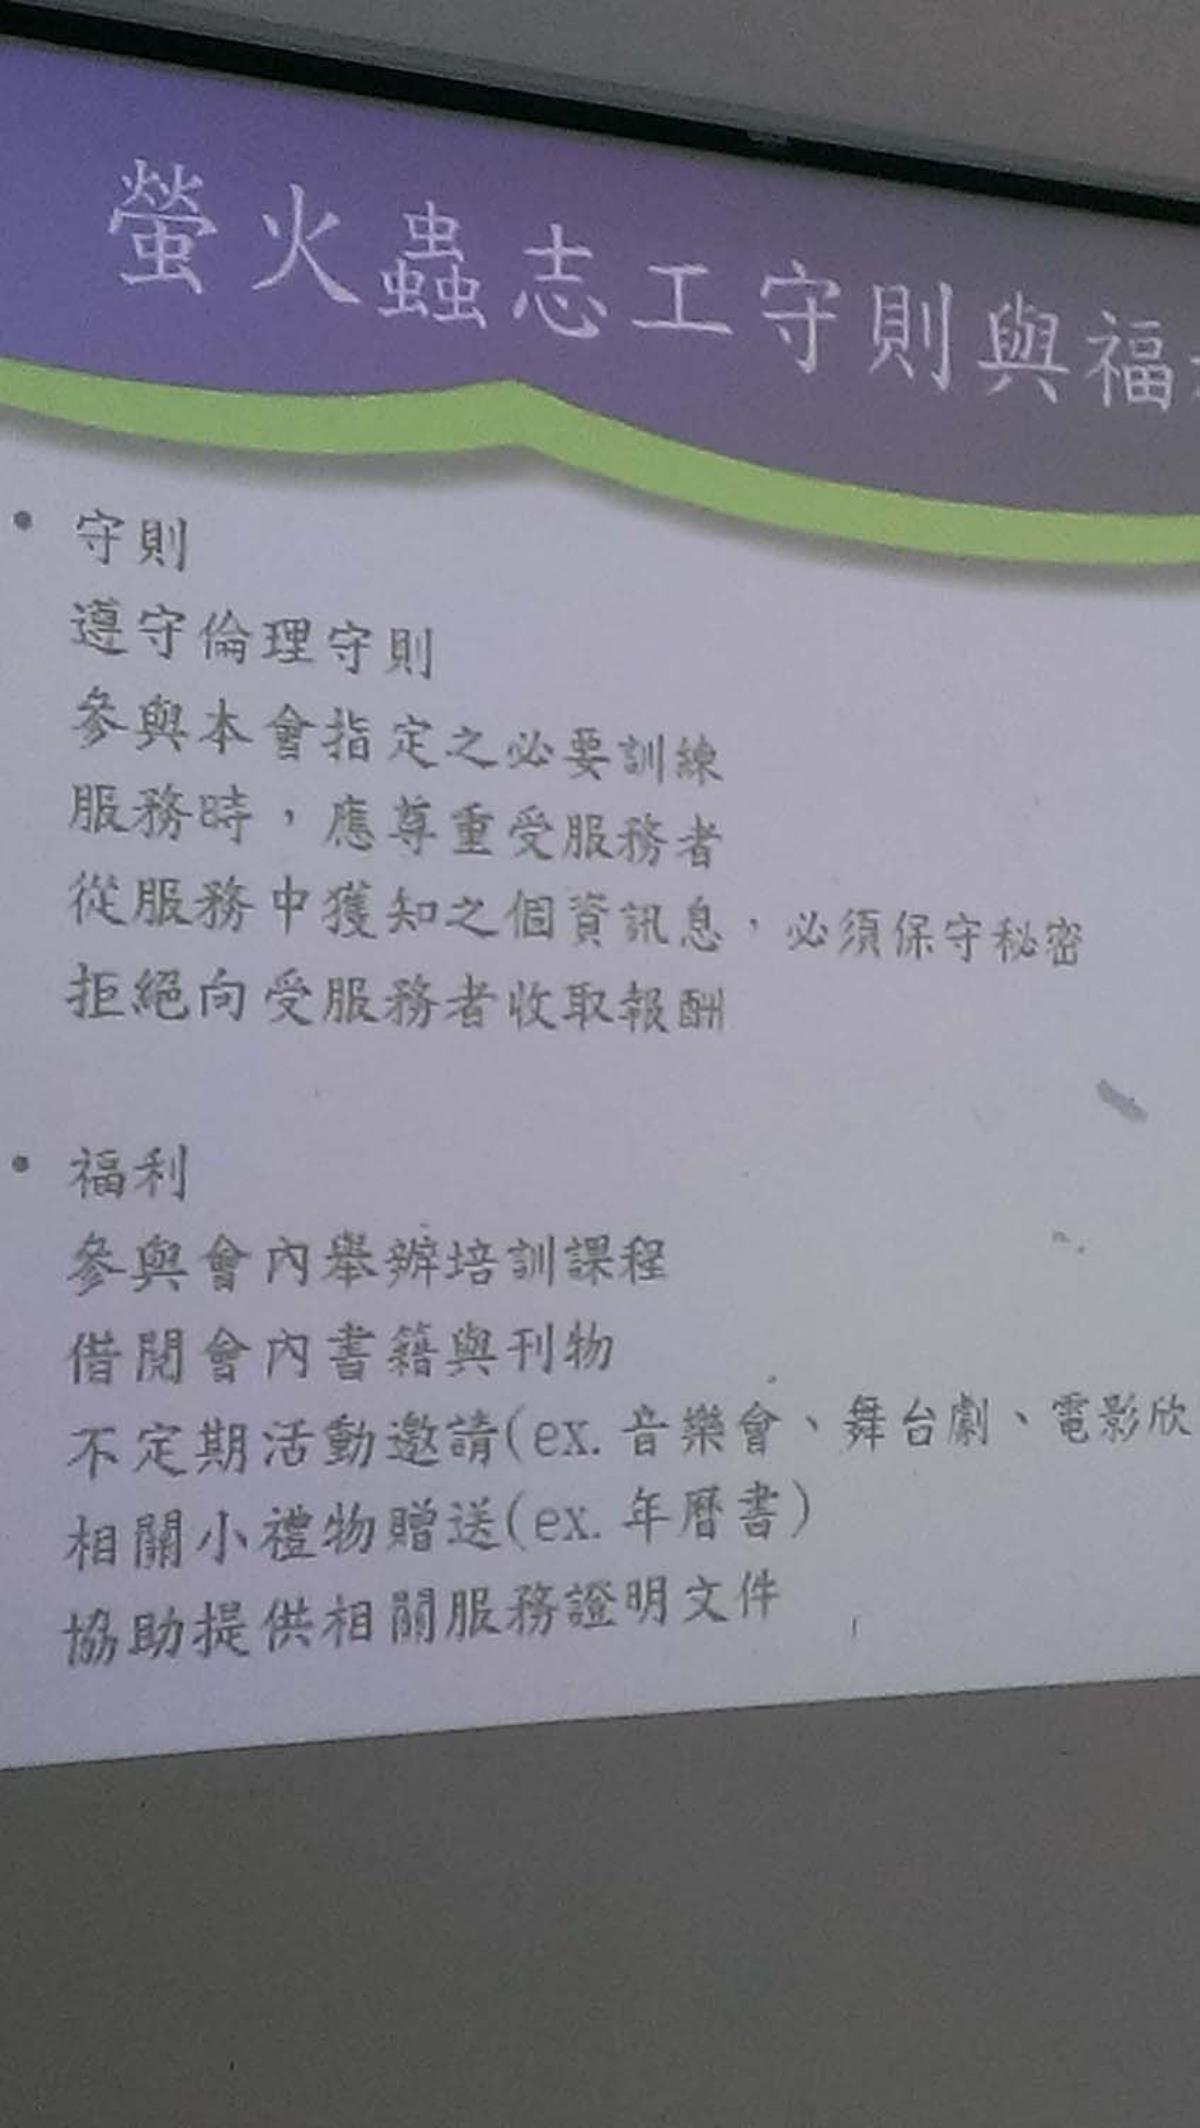 螢火蟲志工守則與福
• 守則
遵守倫理守則
參與本會指定之必要訓練
服務時，應尊重受服務者
從服務中獲知之個資訊息，必須保守秘密
拒絕向受服務者收取報酬
• 福利
參與會內舉辦培訓課程
借閱會內書籍與刊物
不定期活動邀請(ex.音樂會、舞台劇、電影欣
相關小禮物贈送(ex.年曆書)
協助提供相關服務證明文件